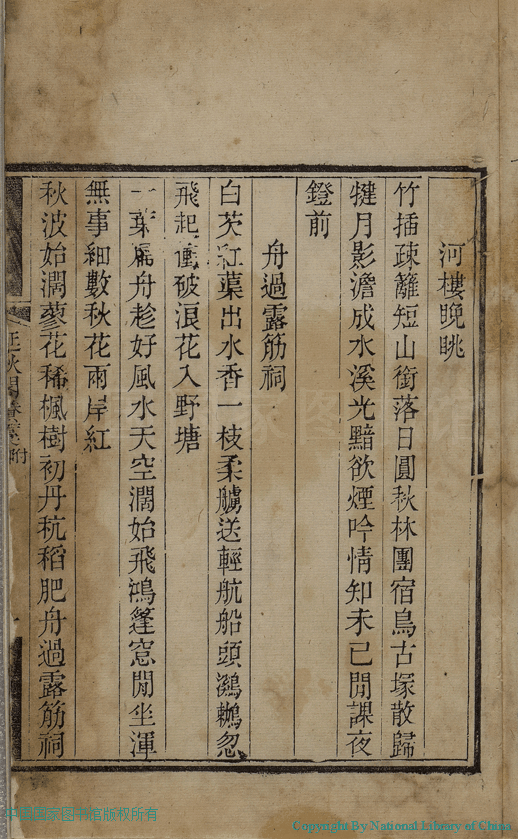 河樓晚眺
竹插疎籬短山銜落日圓秋林團宿鳥古塚散歸
犍月影澹成水溪光黯欲煙吟情知未已閒課夜
鐙前
舟過露筋祠
白芡紅蕖出水香一枝柔艣送輕航船頭鸂鶒忽
飛起衝破浪花入野塘
一葉扁舟趁好風水天空濶始飛鴻篷窓閒坐渾
無事細數秋花兩岸紅
秋波始濶蓼花稀楓樹初丹秔稻肥舟過露筋祠
附
中国国家图书馆版权所有
Copyright By National Library of China